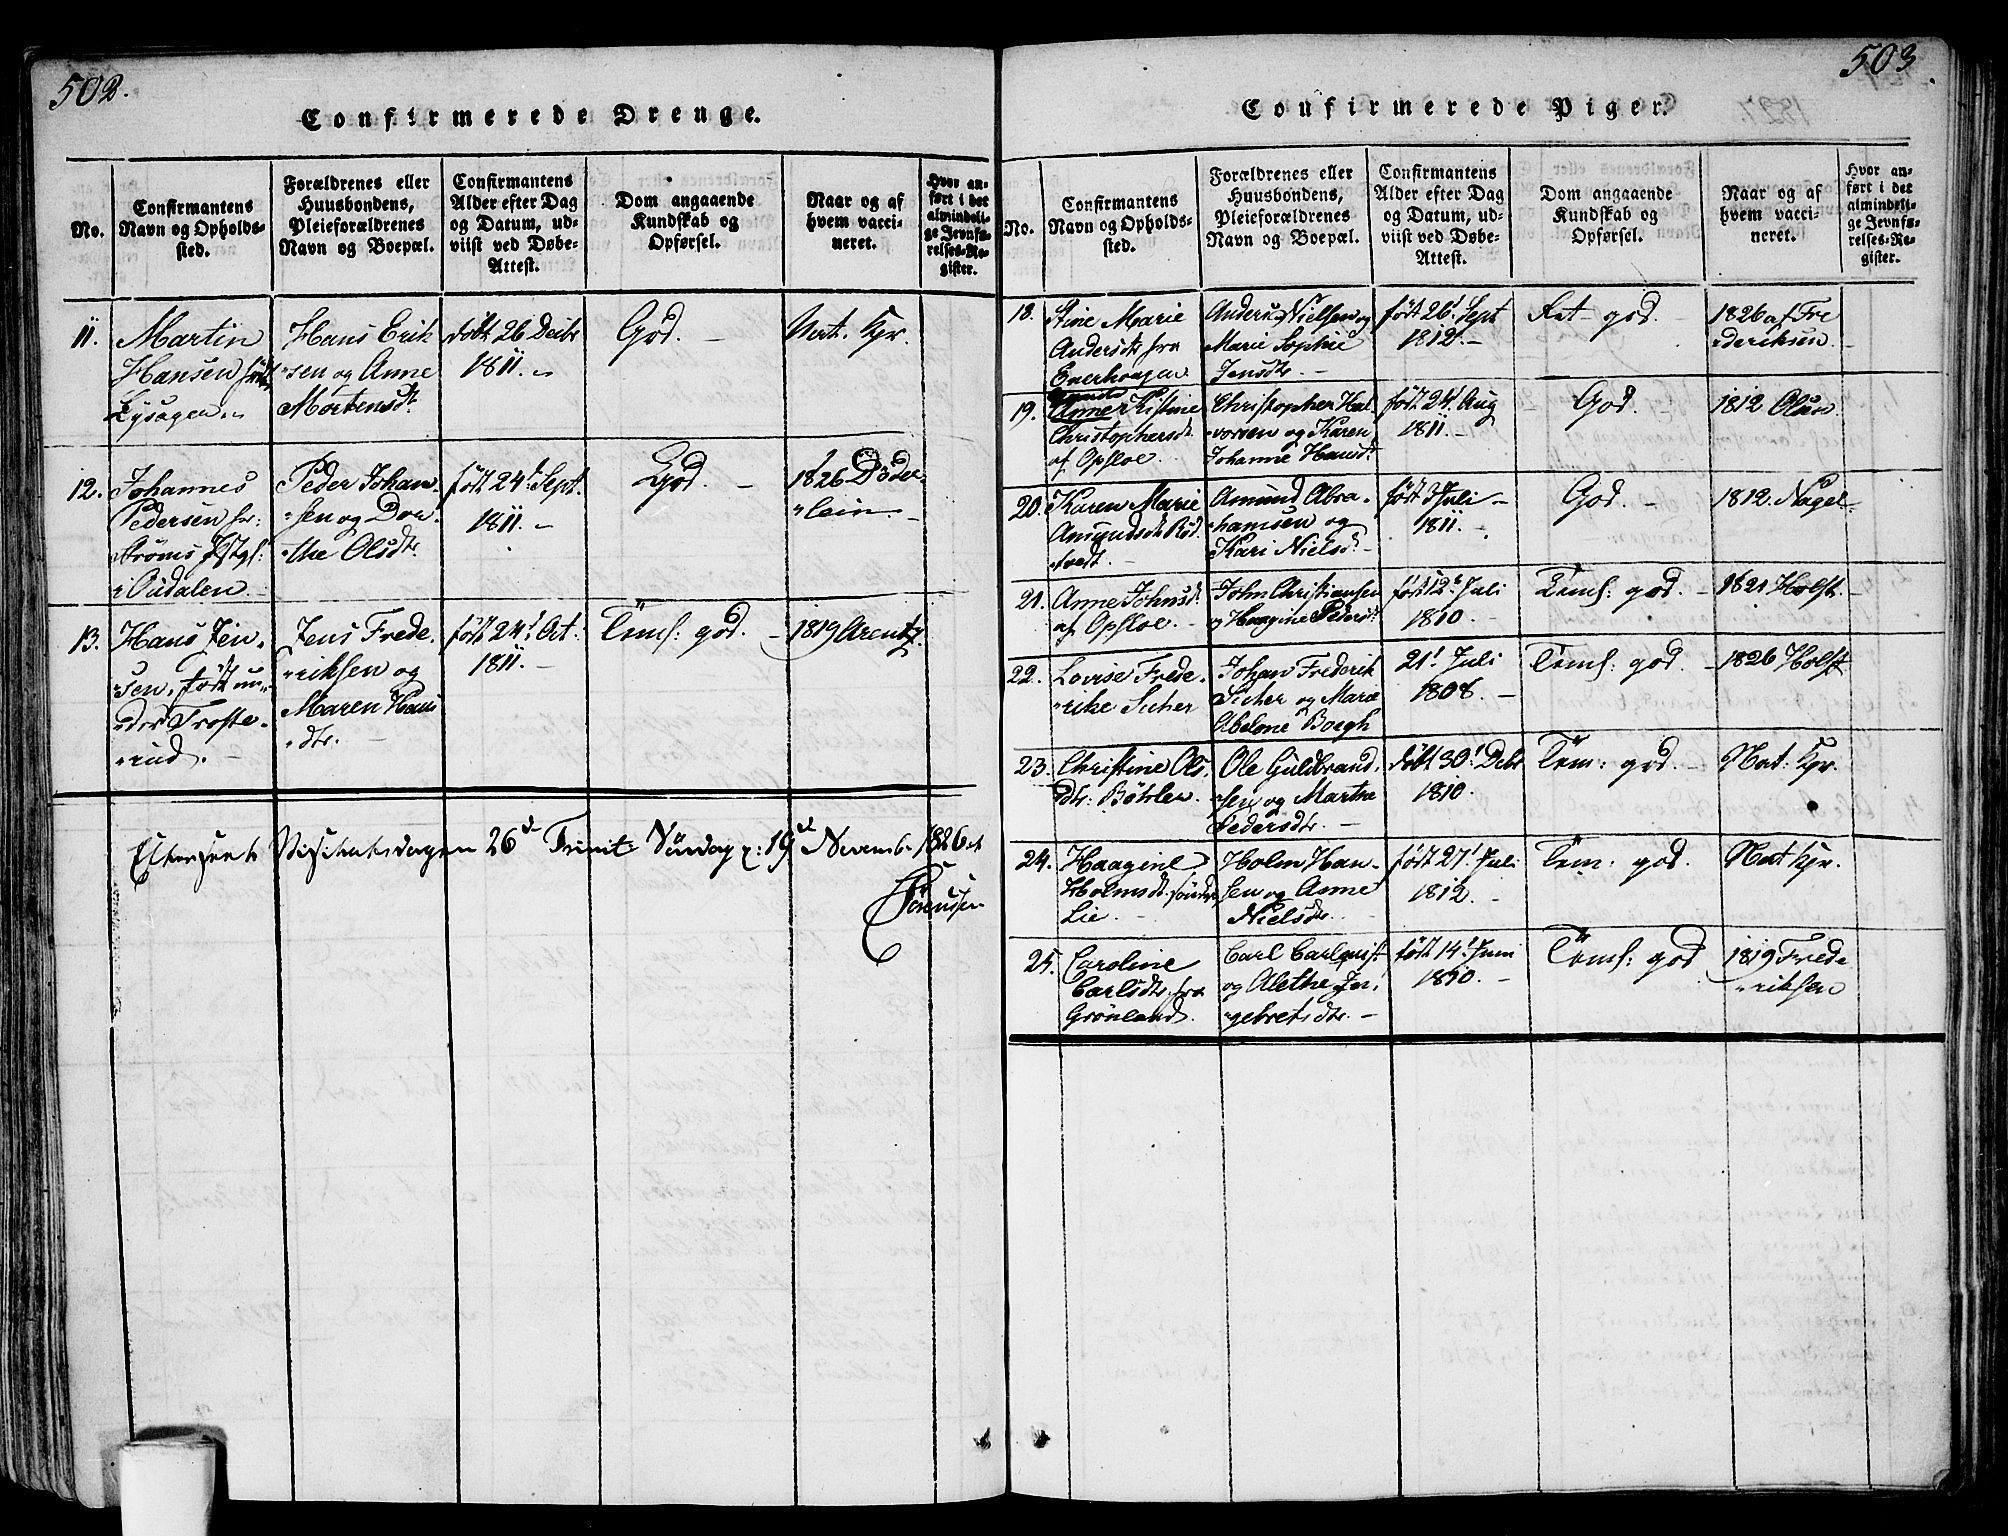 502.
Confirmerede Drenge.
No.
Confirmantens
Navn og Opholds-
sted.
Forældrenes eller
Huusbondens,
Pleieforældrenes
Navn og Boepæl.
Confirmantens
Alder efter Dag
og Datum, ud-
viist ved Døbe-
Attest.
Dom angaaende
Kundskab og
Opførsel.
Naar og af
hvem vacci-
neret.
Hvor an-
ført i det
almindeli-
ge Jevnfø-
relses-Re-
gister.
11.
Martin
Hansen
Lysagen
Hans Erik
sen og Anne
Mortensdt.
født 26 Decbr
1811.
God. -
Nat. Kpr.
12.
Johannes
Pedersen fr:
Strøms
Oudalen
Peder Johan
sen og Dor
the Olsdtr
født 24d Sept.
1811. -
God. -
1826 Døder
lein. -
13.
Hans Jen
sen, født un
der Troste
rud. -
Jens Frede
riksen og
Maren Hans
dtr. -
født 24d Oct:
1811. -
Temf: god. -
1819 Arentz.
Efterseet Visitatsdagen 26de Trinit: Søndag z: 19de Novemb. 1826 at
Sørensen
503.
Confirmerede Piger.
No.
Confirmantens
Navn og Opholds-
sted.
Forældrenes eller
Huusbondens,
Pleieforældrenes
Navn og Boepæl.
Confirmantens
Alder efter Dag
og Datum, ud-
viist ved Døbe-
Attest.
Dom angaaende
Kundskab og
Opførsel.
Naar og af
hvem vacci-
neret.
Hvor an-
ført i det
almindeli-
ge Jevnfø-
relses-Re-
gister.
18.
Stine Marie
Andersdtr fra
Enerhougen
Anders Nielsen og
Marie Sophie
Jensdtr. -
født 26d Sept
1812. -
Ret god. -
1826 af Fre
deriksen. -
19.
Anne Kistine
Christophersdt.
af Opsloe. -
Christopher Hal
vorsen og Karen
Johanne Hansdt.
født 24d Aug
1811. -
God. -
1812 Olsen
20.
Karen Marie
Amundsdt. Rød
tvedt. -
Amund Abra
hamsen og
Kari Nielsdt. -
født 3 Juli -
1811. -
God. -
1812. Nagel.
21.
Anne Johnsdt.
af Opsloe. -
John Christiansen
og Haagine Pedersdt.
født 12te Juli
1810. -
Temf: god. -
1821 Holst.
22.
Lovise Frede
rike Sicher
Johan Frederik
Sicher og Maren
Abelone Borgh
21d Juli
1808. -
Temf: god. -
1826 Holst
23.
Christine Ols
dtr: Bøhler.
Ole Guldbrand
sen og Martha
Pedersdtr. -
født 30d Debr
1810. -
Tem: god. -
Nat: Kpr.
24.
Haagine
Holmsdt. søndre
Lie. -
Holm Han
sen og Anne
Nielsdtr. -
født 27d Juli
1812. -
Tem: god.
Nat Kpr.
25.
Caroline
Carlsdtr fra
Grønland.
Carl Carlquist
og Alethe In
gebretsdtr. -
født 14d Juni
1810. -
Temf: god
1819 Frede
riksen